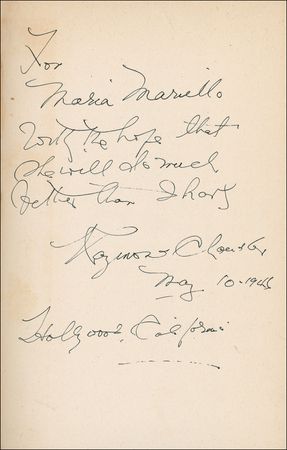 For
Maria Mariello
With the hope that
she will do much
better than I have
Raymond Chandler
May 10-1946
Hollywood, California